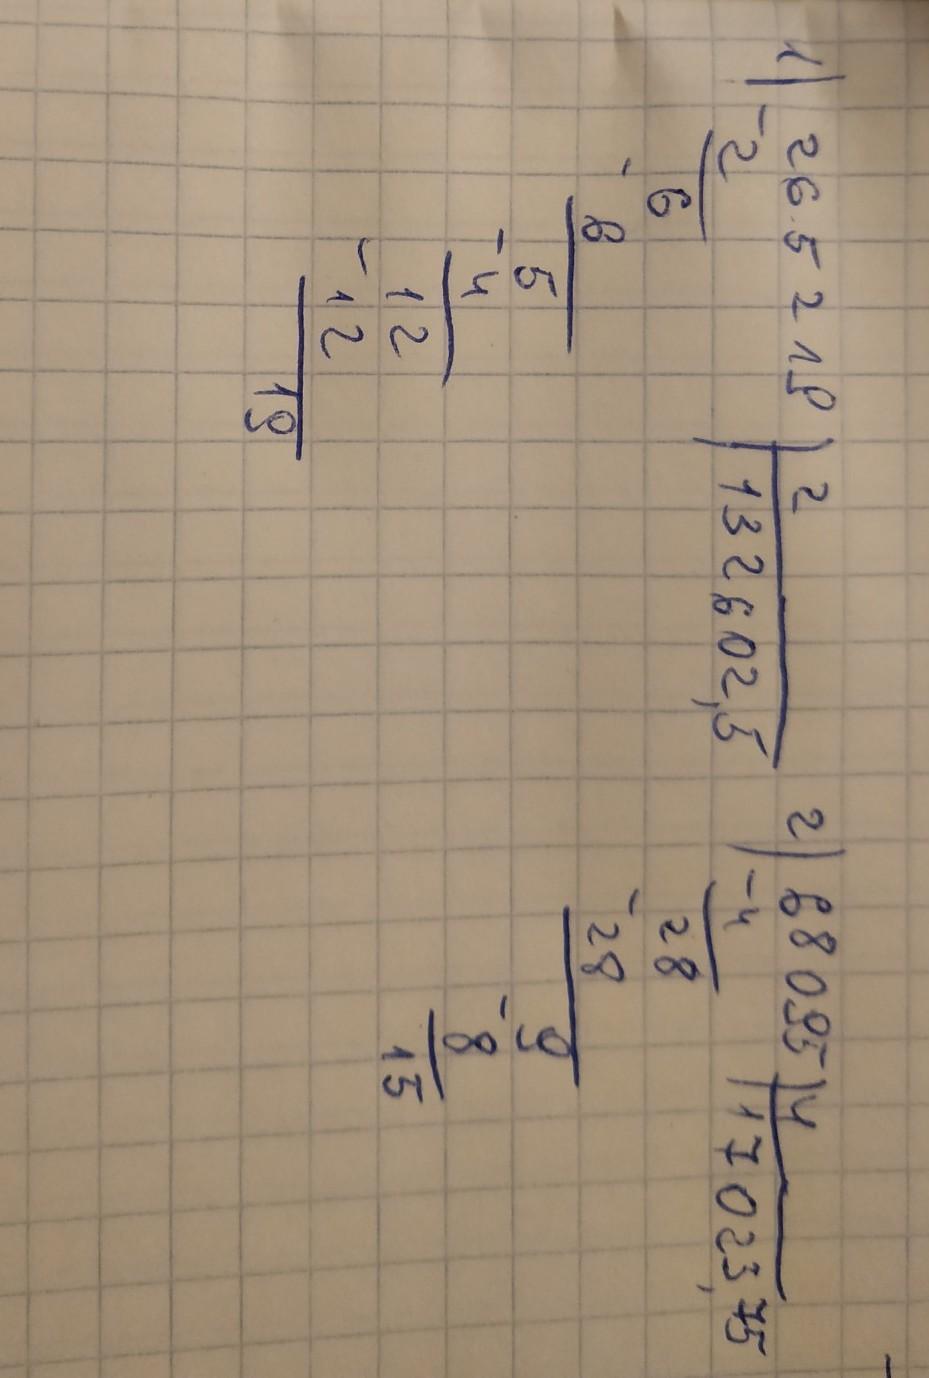 1) 265219 2
-2 132602,5
6
-6
5
-4
12
-12
19
2) 68095 4
-4 17023,75
28
-28
9
-8
15